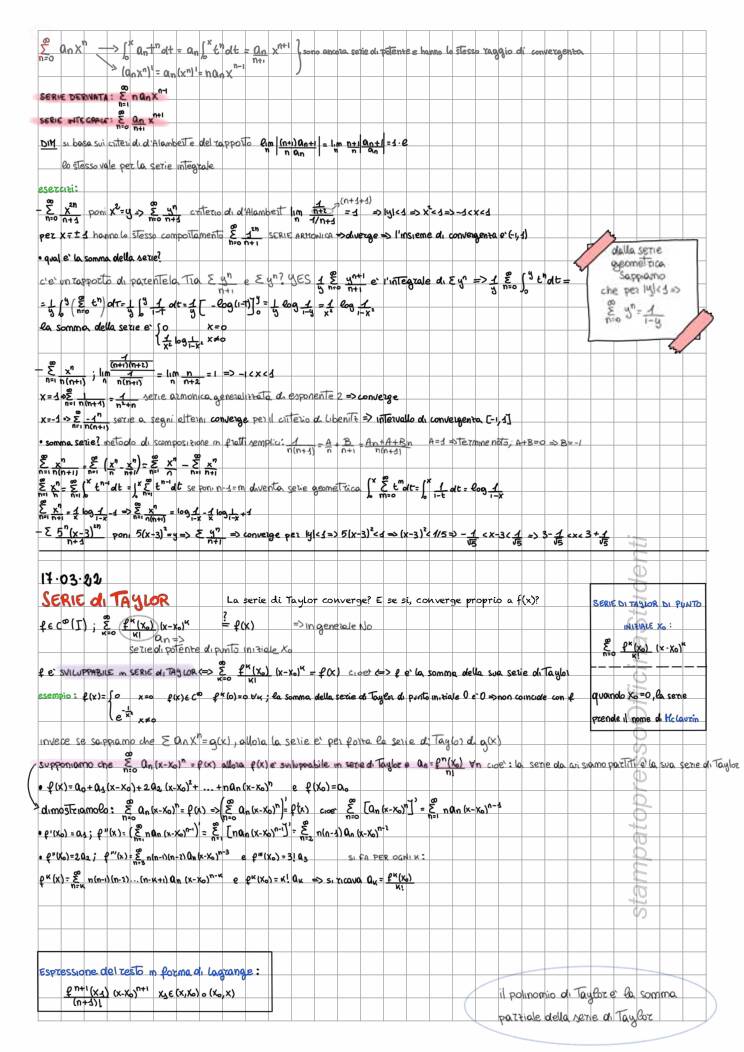 ∑_{n=0}^{∞} aₙxⁿ → ∫₀ˣ aₙtⁿdt = aₙ∫₀ˣ tⁿdt = aₙ/(n+1) xⁿ⁺¹ } sono ancora serie di potente e hanno lo stesso raggio di convergenta
→ (aₙxⁿ)' = aₙ(xⁿ)' = naₙxⁿ⁻¹
SERIE DERIVATA: ∑_{n=1}^{∞} naₙxⁿ⁻¹
SERIE INTEGRALE: ∑_{n=0}^{∞} aₙ/(n+1) xⁿ⁺¹
DIM si basa sui criteri di d'Alambert e del rapporto lim_n |(n+1)aₙ₊₁/(n aₙ)| = lim_n (n+1)/n |aₙ₊₁/aₙ| = 1·ℓ
lo stesso vale per la serie integrale
esercizi:
- ∑_{n=0}^{∞} x²ⁿ/(n+1) poni x²=y ⇒ ∑_{n=0}^{∞} yⁿ/(n+1) criterio di d'Alembert lim_n (1/(n+2))/(1/n+1) (n+1+1) = 1 ⇒ |y|<1 ⇒ x²<1 ⇒ -1<x<1
per x=±1 hanno lo stesso comportamento ∑_{n=0}^{∞} 1²ⁿ/(n+1) SERIE ARMONICA ⇒ diverge ⇒ l'insieme di convergenta e' (-1,1)
• qual e' la somma della serie?
c'e' un rapporto di parentela tra ∑ yⁿ/(n+1) e ∑yⁿ? YES 1/y ∑_{n=0}^{∞} yⁿ⁺¹/(n+1) e' l'integrale di ∑yⁿ ⇒ 1/y ∑_{n=0}^{∞} ∫₀ʸ tⁿdt =
= 1/y ∫₀ʸ (∑_{n=0}^{∞} tⁿ) dt = 1/y ∫₀ʸ 1/(1-t) dt = 1/y [-log(1-t)]₀ʸ = 1/y log 1/(1-y) = 1/x² log 1/(1-x²)
la somma della serie e' { 0 x=0
1/x² log 1/(1-x²) x≠0
dalla serie
geometrica
sappiamo
che per |y|<1 ⇒
∑_{n=0}^{∞} yⁿ = 1/(1-y)
- ∑_{n=1}^{∞} xⁿ/(n(n+1)) ; lim_n (1/((n+1)(n+2)))/(1/(n(n+1))) = lim_n n/(n+2) = 1 ⇒ -1<x<1
x=1 ⇒ ∑_{n=1}^{∞} 1/(n(n+1)) = 1/(n²+n) serie armonica generalizzata di esponente 2 ⇒ converge
x=-1 ⇒ ∑_{n=1}^{∞} -1ⁿ/(n(n+1)) serie a segni alterni converge per il criterio di Libenitz ⇒ intervallo di convergenta [-1,1]
• somma serie? metodo di scomposizione in fratti semplici: 1/(n(n+1)) = A/n + B/(n+1) = (An+A+Bn)/(n(n+1)) A=1 ⇒ termine noto; A+B=0 ⇒ B=-1
∑_{n=1}^{∞} xⁿ/(n(n+1)) = ∑_{n=1}^{∞} (xⁿ/n - xⁿ/(n+1)) = ∑_{n=1}^{∞} xⁿ/n - ∑_{n=1}^{∞} xⁿ/(n+1)
∑_{n=1}^{∞} xⁿ/n = ∑_{n=1}^{∞} ∫₀ˣ tⁿ⁻¹dt = ∫₀ˣ ∑_{n=1}^{∞} tⁿ⁻¹dt se poni n-1=m diventa serie geometrica ∫₀ˣ ∑_{m=0}^{∞} tᵐdt = ∫₀ˣ 1/(1-t) dt = log 1/(1-x)
∑_{n=1}^{∞} xⁿ/(n+1) = 1/x log 1/(1-x) - 1 ⇒ ∑_{n=1}^{∞} xⁿ/(n(n+1)) = log 1/(1-x) - 1/x log 1/(1-x) + 1
- ∑ 5ⁿ(x-3)²ⁿ/(n+1) poni 5(x-3)²=y ⇒ ∑ yⁿ/(n+1) ⇒ converge per |y|<1 ⇒ 5(x-3)²<1 ⇒ (x-3)²<1/5 ⇒ -1/√5 <x-3< 1/√5 ⇒ 3-1/√5 <x< 3+1/√5
17·03·22
SERIE di TAYLOR La serie di Taylor converge? E se si, converge proprio a f(x)?
f∈C^∞(I) ; ∑_{k=0}^{∞} fᵏ(x₀)/k! (x-x₀)ᵏ =? f(x) ⇒ in generale No
aₙ ⇒
serie di potente di punto iniziale x₀
SERIE DI TAYLOR DI PUNTO
INIZIALE x₀:
∑_{n=0}^{∞} fᵏ(x₀)/k! (x-x₀)ᵏ
quando x₀=0, la serie
prende il nome di McLaurin
f e' SVILUPPABILE in SERIE di TAYLOR ⟺ ∑_{k=0}^{∞} fᵏ(x₀)/k! (x-x₀)ᵏ = f(x) cioe' ⟺ f e' la somma della sua serie di Taylor
esempio: f(x)={ 0 x=0 f(x)∈C^∞ fᵏ(0)=0 ∀k ; la somma della serie di Taylor di punto iniziale 0 e' 0 ⇒ non coincide con f
e^{-1/x²} x≠0
invece se sappiamo che ∑aₙxⁿ=g(x), allora la serie e' per forta la serie di Taylor di g(x)
supponiamo che ∑_{n=0}^{∞} aₙ(x-x₀)ⁿ = f(x) allora f(x) e' sviluppabile in serie di Taylor e aₙ = fⁿ(x₀)/n! ∀n cioe': la serie da cui siamo partiti e' la sua serie di Taylor
• f(x)=a₀+a₁(x-x₀)+2a₂(x-x₀)²+...+naₙ(x-x₀)ⁿ e f(x₀)=a₀
dimostriamolo: ∑_{n=0}^{∞} aₙ(x-x₀)ⁿ = f(x) ⇒ (∑_{n=0}^{∞} aₙ(x-x₀)ⁿ)' = f'(x) cioe' ∑_{n=0}^{∞} [aₙ(x-x₀)ⁿ]' = ∑_{n=1}^{∞} naₙ(x-x₀)ⁿ⁻¹
• f'(x₀)=a₁ ; f''(x)=(∑_{n=1}^{∞} naₙ(x-x₀)ⁿ⁻¹)' = ∑_{n=1}^{∞} [naₙ(x-x₀)ⁿ⁻¹]' = ∑_{n=2}^{∞} n(n-1)aₙ(x-x₀)ⁿ⁻²
• f''(x₀)=2a₂ ; f'''(x)=∑_{n=3}^{∞} n(n-1)(n-2)aₙ(x-x₀)ⁿ⁻³ e f'''(x₀)=3! a₃ SI FA PER OGNI K:
fᵏ(x)=∑_{n=k}^{∞} n(n-1)(n-2)...(n-k+1)aₙ(x-x₀)ⁿ⁻ᵏ e fᵏ(x₀)=k! aₖ ⇒ si ricava aₖ = fᵏ(x₀)/k!
Espressione del resto in forma di Lagrange:
fⁿ⁺¹(x₁)/(n+1)! (x-x₀)ⁿ⁺¹ x₁∈(x,x₀) o (x₀,x)
il polinomio di Taylor e' la somma
parziale della serie di Taylor
stampatopressoOfficinaStudenti